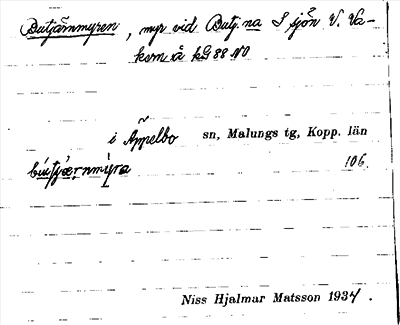 Butjärnmyren, myr vid Butj.na S sjön V. Va-
kern å kG 88 NO
i Äppelbo sn, Malungs tg, Kopp. län
bu̇tjær̥nmỳra 106.
Niss Hjalmar Matsson 1934.